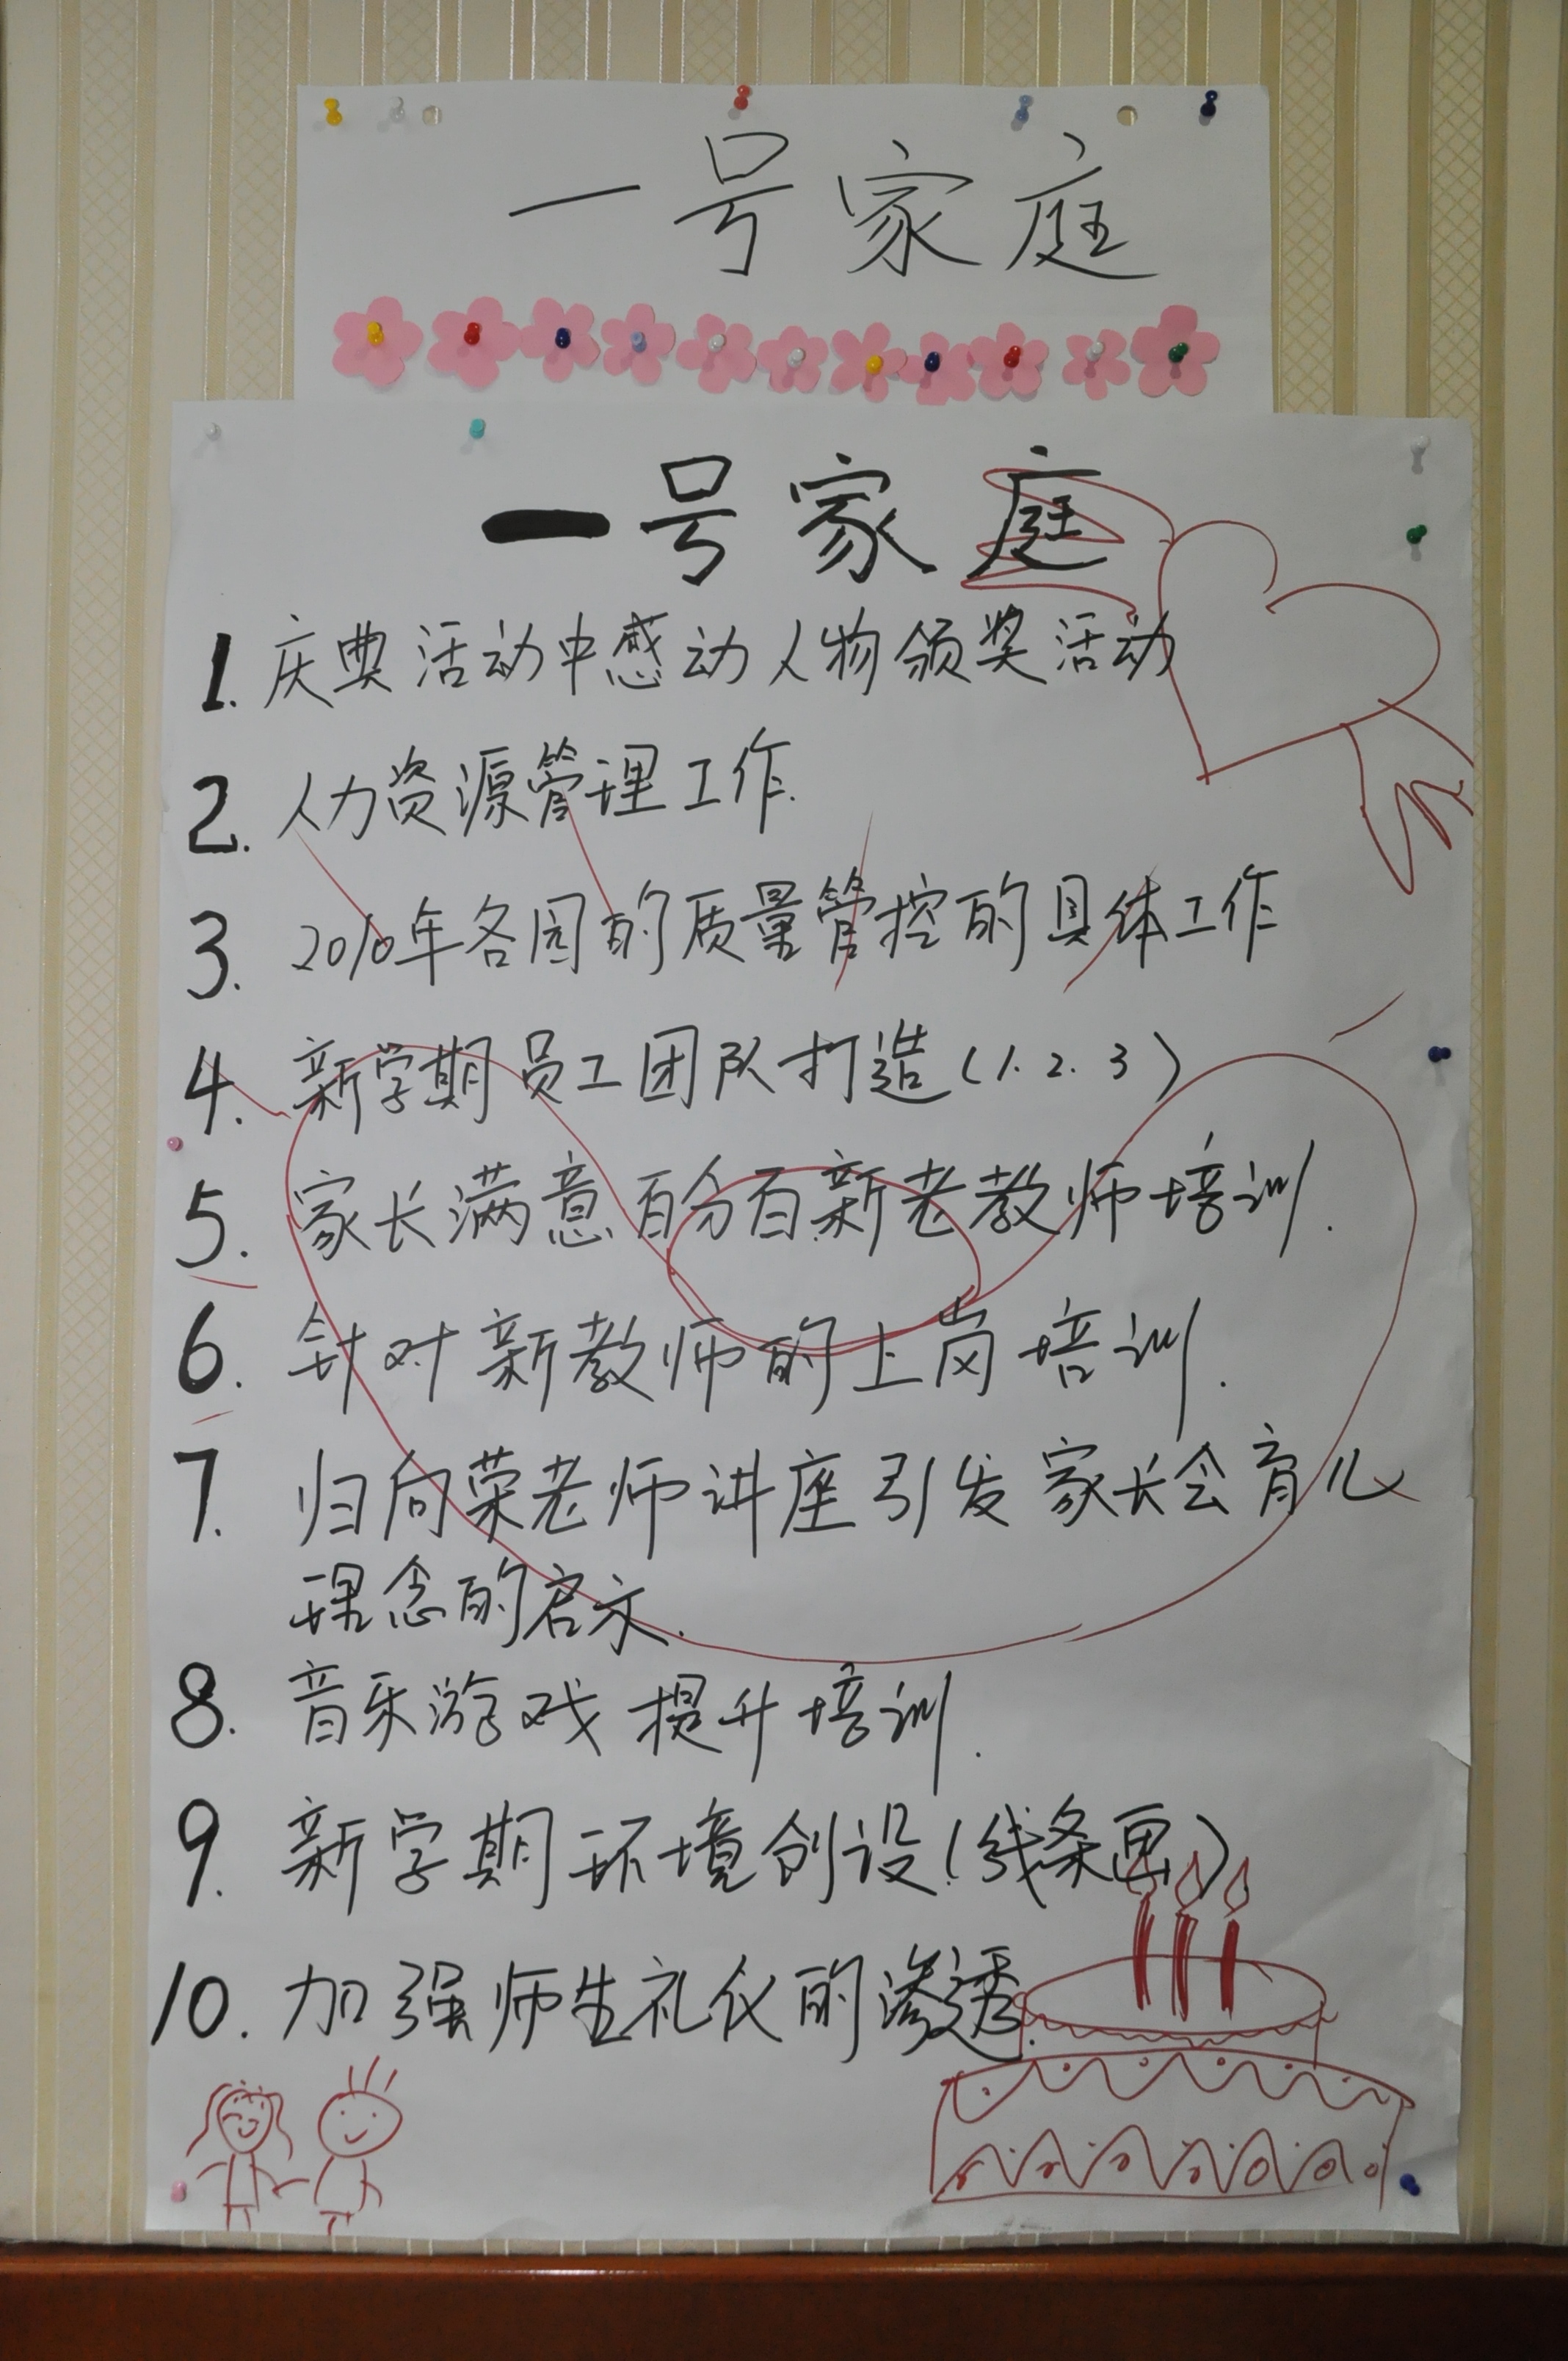 一号家庭
一号家庭
1. 庆典活动中感动人物颁奖活动
2. 人力资源管理工作.
3. 2010年各园的质量管控的具体工作
4. 新学期员工团队打造(1.2.3)
5. 家长满意百分百新老教师培训.
6. 针对新教师的上岗培训.
7. 归向荣老师讲座引发家长会育儿
理念的启示.
8. 音乐游戏提升培训.
9. 新学期环境创设(线条画)
10. 加强师生礼仪的渗透.